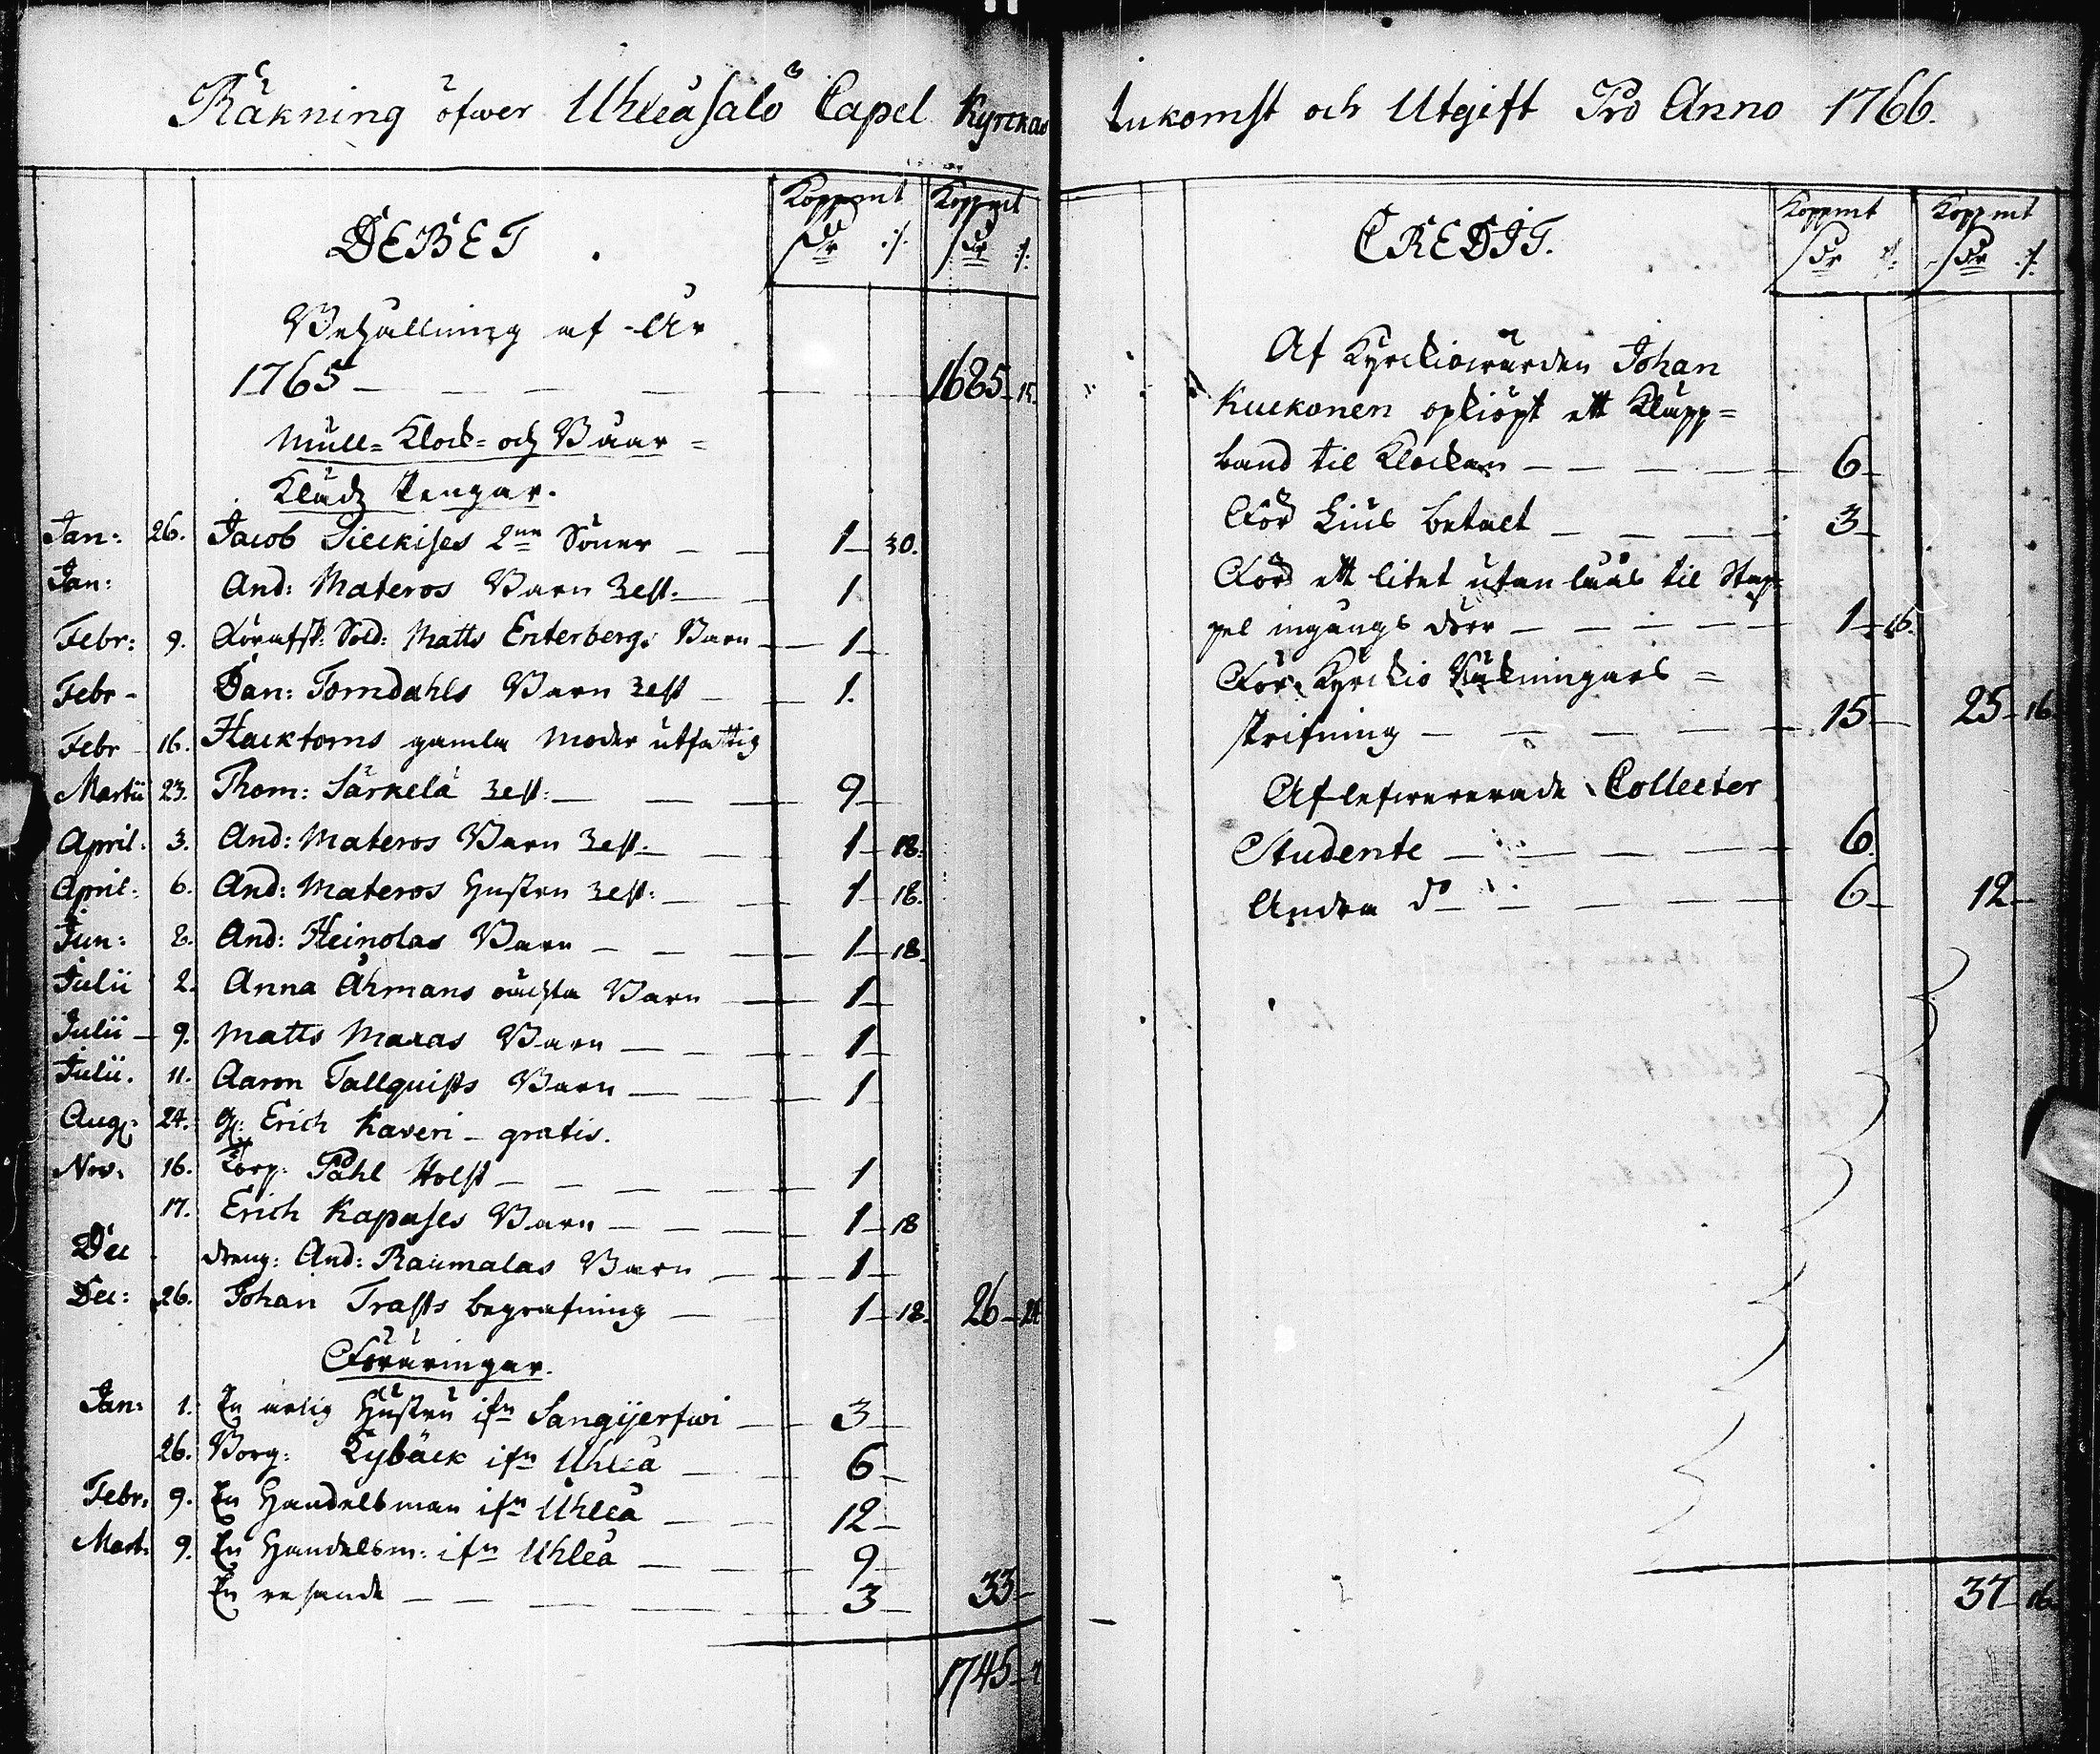 Räkning öfwer Uhleåsalo Capel Kyrckas Inkomst och Utgift Pro Anno 1766.
DEBET.
Koppmt Koppmt
Dr :/. Dr :/.
Behållning af År
1765 — — — — 1685 – 15.
Mull= Klock= och Baar=
Kläds Pengar.
Jan: 26. Jacob Sieckises 2ne Söner — 1 – 30.
Jan: And: Materos Barn Rest. — 1.
Febr: 9. Förafsk: Sold: Matts Enterbergs Barn — 1 –
Febr – Dan: Torndahls Barn Rest — 1.
Febr – 16. Hacktorns gamla Moder utfattig
Martii 23. Thom: Särkelä Rest: — 9 –
April. 3. And: Materos Barn Rest. — 1 – 18.
April. 6. And: Materos Hustru Rest: — 1 – 18.
Jun: 8. And: Heinolas Barn — 1 – 18.
Julii 2. Anna Åhmans oächta Barn — 1 –
Julii – 9. Matts Maxas Barn — 1 –
Julii. 11. Aaron Tallquists Barn — 1
Aug: 24. Erich Kaveri – gratis.
Nov: 16. Corp: Påhl Holst — 1
17. Erich Kapuses Barn — 1 – 18
Dec dreng: And: Raumalas Barn — 1 –
Dec: 26. Johan Trasts begrafning — 1 – 18. 26 – 24
Föräringar.
Jan: 1. En ärlig Hustru ifn Sangijerfwi — 3 –
26. Borg: Lybäck ifn Uhleå — 6 –
Febr: 9. En Handelsman ifn Uhleå — 12 –
Mart: 9. En Handelsm: ifn Uhleå — 9 –
En resande — 3 – 33 –
1745 –
CREDIT.
Koppmt Koppmt
Dr :/. Dr :/.
Af Kyrckiowärden Johan
Kuckonen opkiöpt ett Kläpp=
band til Klockan — 6 –
För Lius betalt — 3 –
För ett litet utanlåås til Stap=
pel ingångs dörr — 1 – 16.
För Kyrckio Räkningars =
skrifning — 15 — 25 – 16
Aflefwererade Collecter
Studente — 6.
Andra do — 6 – 12 –
37 – 16